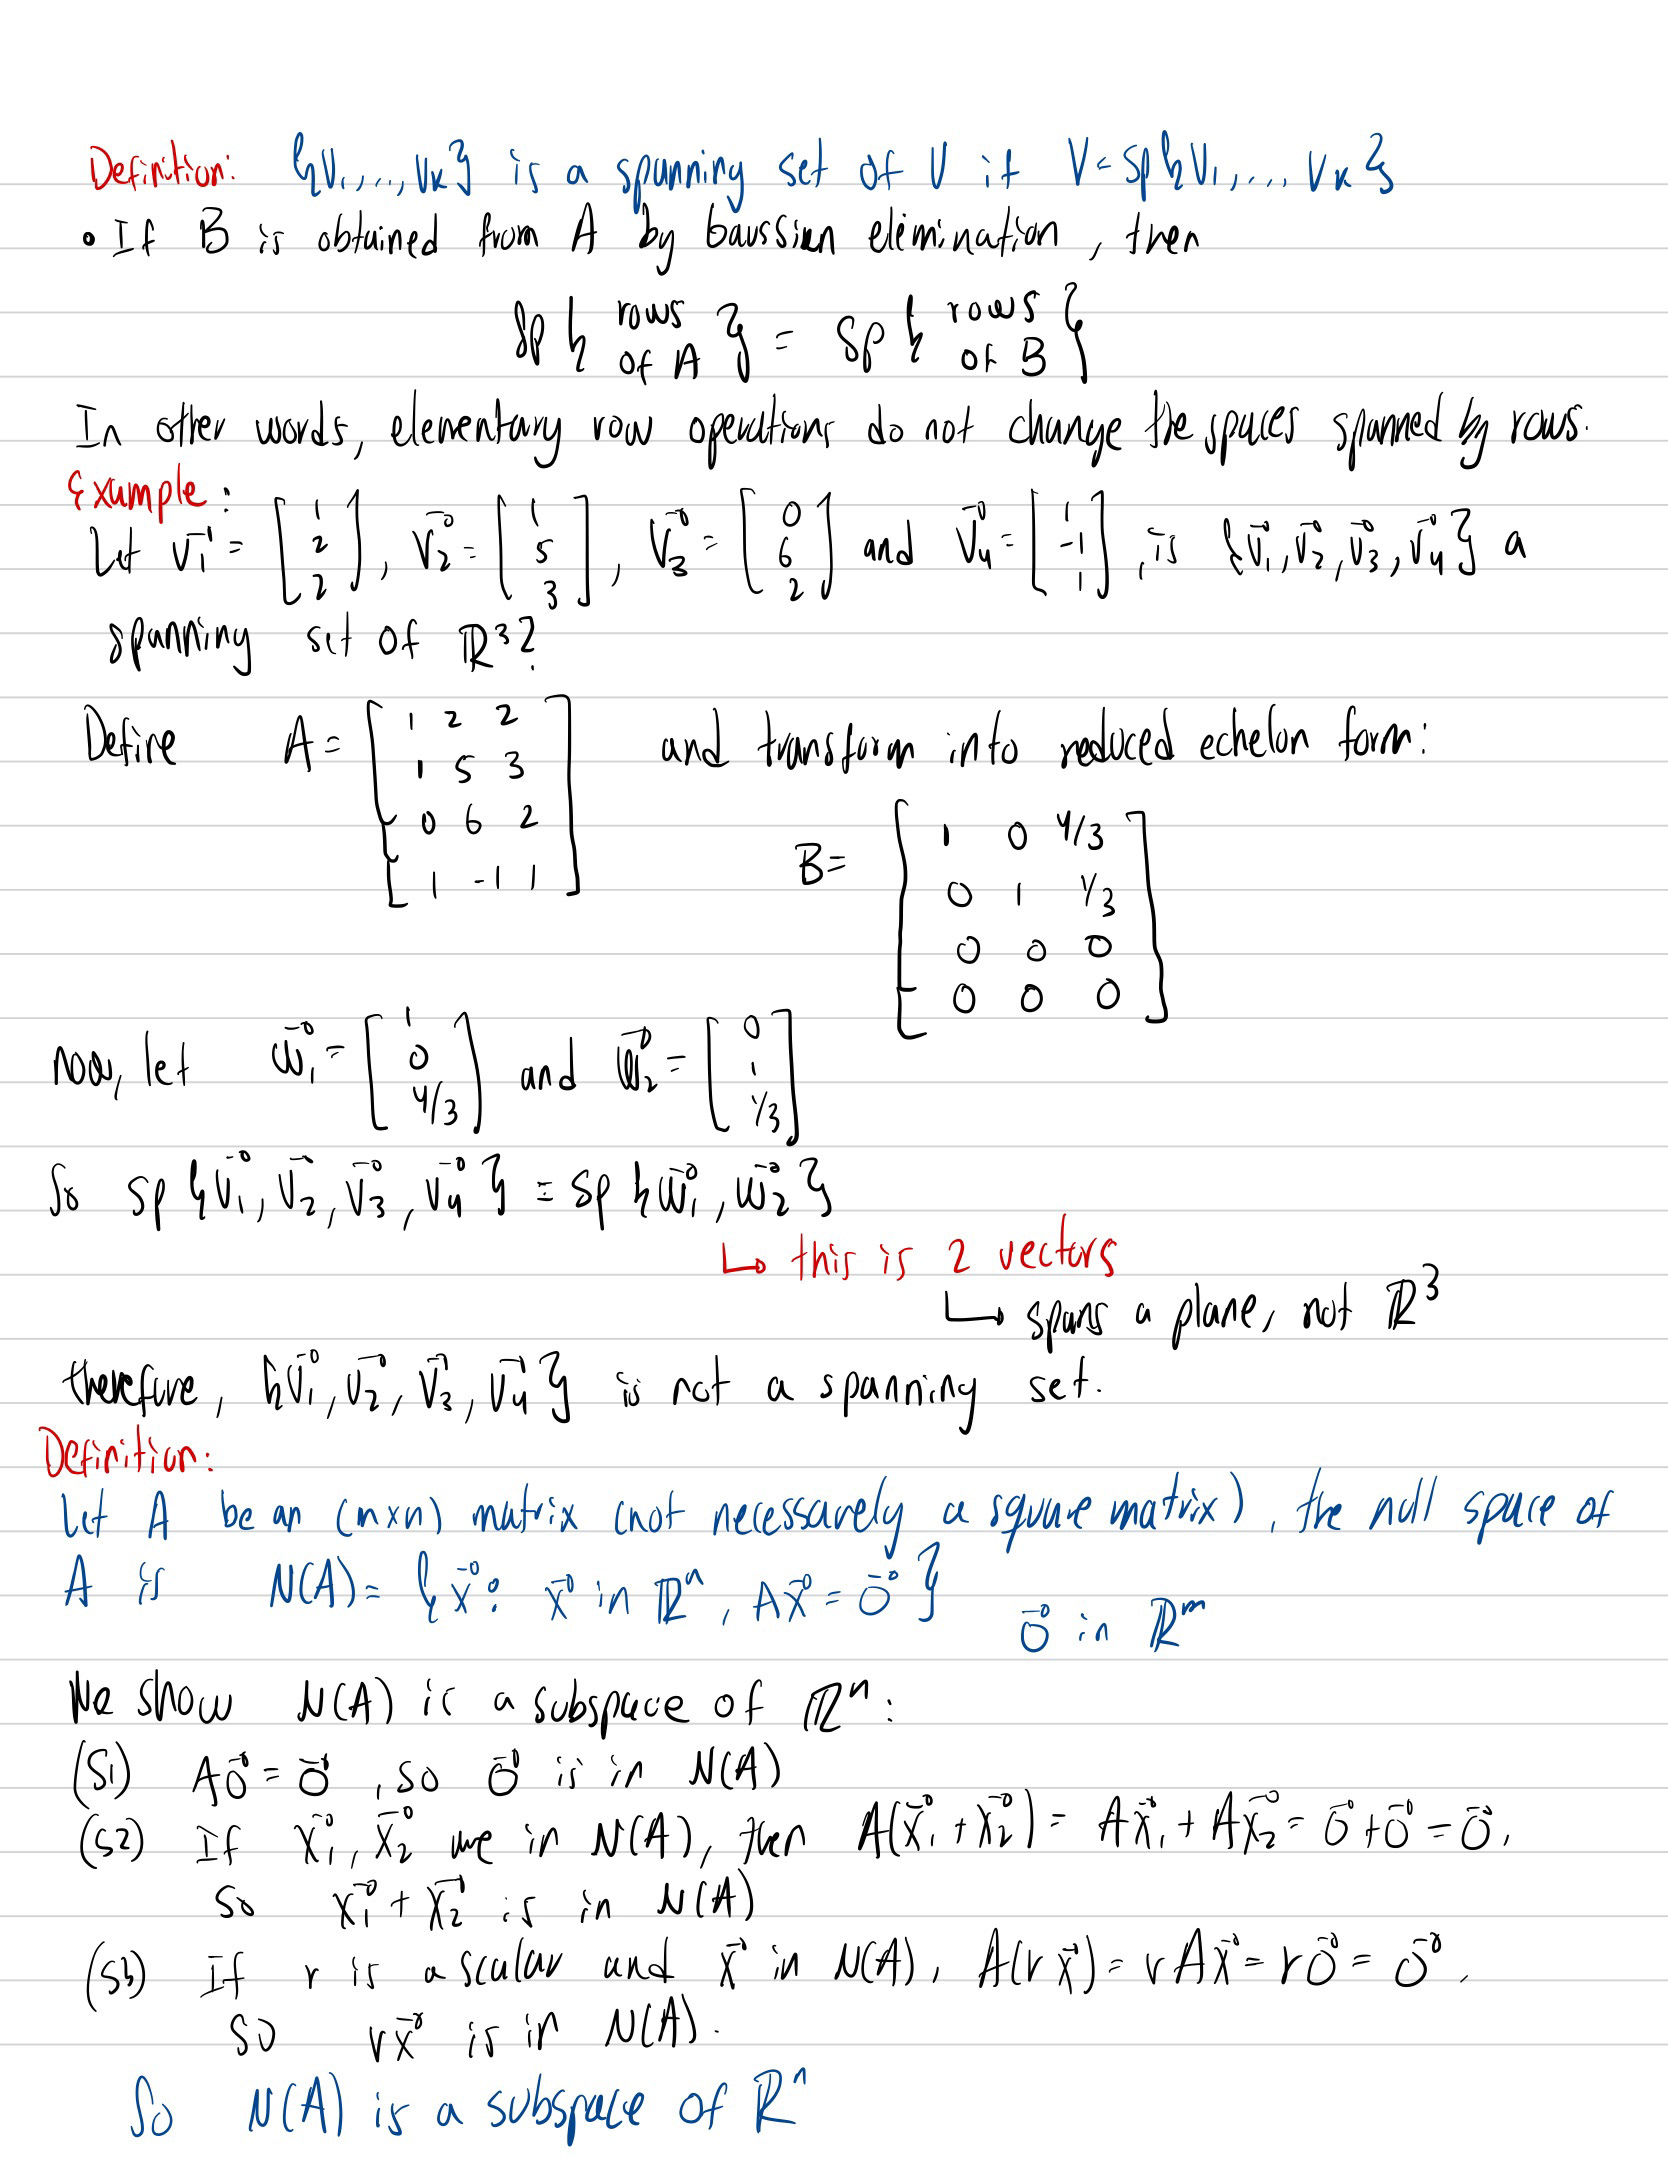 Definition: {v₁,..., vₖ} is a spanning set of V if V = sp{v₁,... vₖ}
• If B is obtained from A by Gaussian elimination, then
sp { rows of A } = sp { rows of B }
In other words, elementary row operations do not change the spaces spanned by rows.
Example:
Let v⃗₁ = [1 2 2], v⃗₂ = [1 5 3], v⃗₃ = [0 6 2] and v⃗₄ = [1 -1 1], is {v⃗₁, v⃗₂, v⃗₃, v⃗₄} a
spanning set of ℝ³?
Define A = [1 2 2
1 5 3
0 6 2
1 -1 1] and transform into reduced echelon form:
B = [1 0 4/3
0 1 1/3
0 0 0
0 0 0]
now, let w⃗₁ = [1 0 4/3] and w⃗₂ = [0 1 1/3]
So sp {v⃗₁, v⃗₂, v⃗₃, v⃗₄} = sp {w⃗₁, w⃗₂}
↳ this is 2 vectors
↳ spans a plane, not ℝ³
therefore, {v⃗₁, v⃗₂, v⃗₃, v⃗₄} is not a spanning set.
Definition:
Let A be an (m×n) matrix (not necessarely a square matrix), the null space of
A is N(A) = {x⃗ : x⃗ in ℝⁿ, Ax⃗ = 0⃗} 0⃗ in ℝᵐ
We show N(A) is a subspace of ℝⁿ:
(S1) A0⃗ = 0⃗, so 0⃗ is in N(A)
(S2) If x⃗₁, x⃗₂ are in N(A), then A(x⃗₁ + x⃗₂) = Ax⃗₁ + Ax⃗₂ = 0⃗ + 0⃗ = 0⃗,
so x⃗₁ + x⃗₂ is in N(A)
(S3) If r is a scalar and x⃗ in N(A), A(rx⃗) = rAx⃗ = r0⃗ = 0⃗,
so rx⃗ is in N(A).
So N(A) is a subspace of ℝⁿ